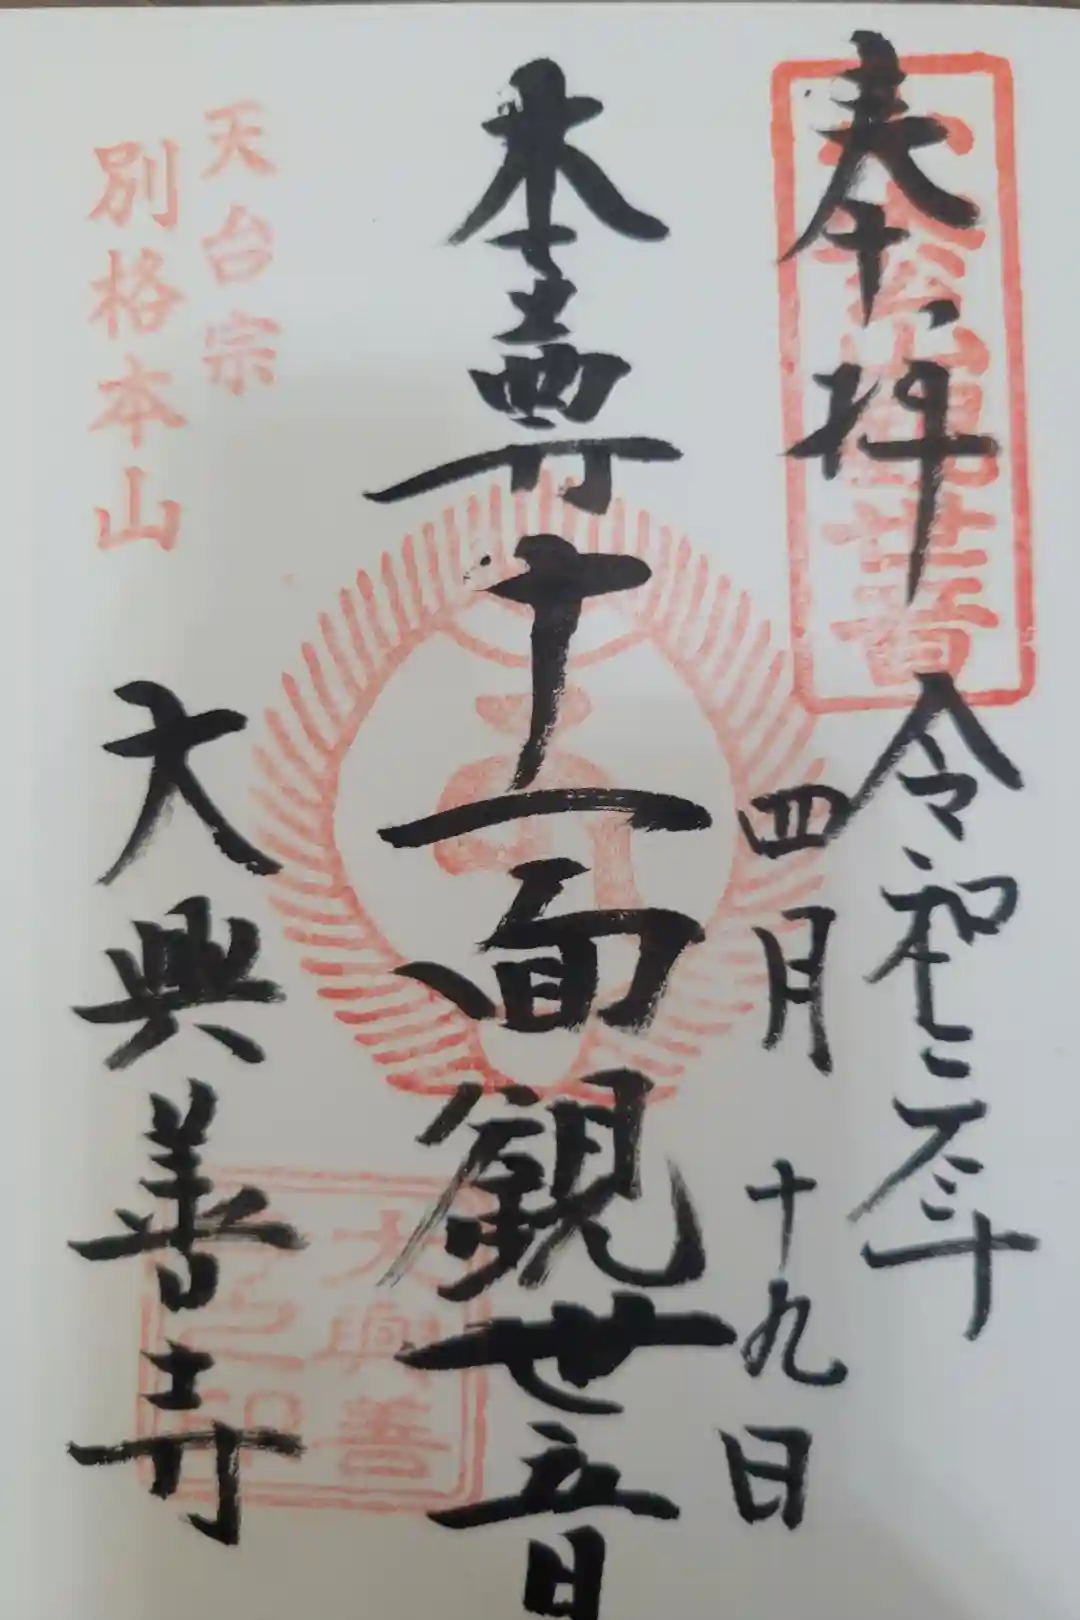 奉拝
令和三年
四月十九日
本尊十一面観世音
天台宗
別格本山
大興善寺
大興善
寺之印